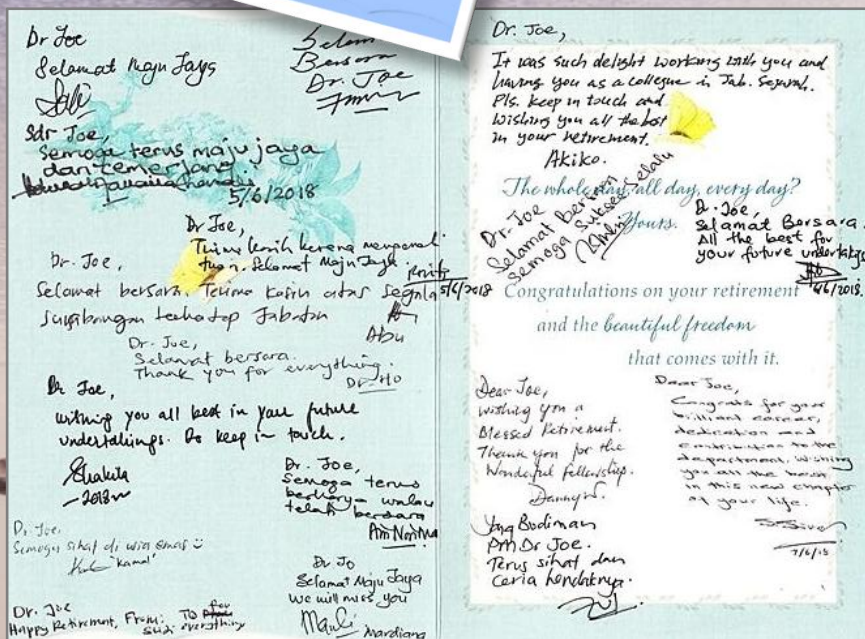 Dr Joe
Selamat Maju Jaya
Selamat
Bersara
Dr. Joe
Sdr Joe,
Semoga terus maju jaya
dan cemerlang.
5/6/2018
Dr Joe,
Terima kasih kerana mengenal
tuan. Selamat Maju Jaya.
5/6/2018
Dr. Joe,
Selamat bersara. Terima kasih atas segala
sumbangan terhadap Jabatan
Abu
Dr. Joe,
Selamat bersara.
Thank you for everything.
Dr. Ho
Dr Joe,
Wishing you all best in your future
undertakings. Do keep in touch.
Shakila
2018
Dr. Joe,
Semoga terus
berkarya walau
telah bersara
Dr. Joe,
Semoga sihat di usia emas
Kamal
Dr Jo
Selamat Maju Jaya
We will miss you
Mardiana
Dr. Joe
Happy Retirement, From:
for
everything
Dr. Joe,
It was such delight working with you and
having you as a collegue in Jab. Sejarah.
Pls. keep in touch and
Wishing you all the best
in your retirement.
Akiko.
The whole day, all day, every day?
Yours.
Dr. Joe
Selamat bersara
Semoga Sukses selalu
Dr. Joe,
Selamat Bersara.
All the best for
your future undertakings
6/6/2018.
Congratulations on your retirement
and the beautiful freedom
that comes with it.
Dear Joe,
Wishing you a
Blessed Retirement.
Thank you for the
Wonderful fellowship.
Danny
Dear Joe,
Congrats for your
brilliant career,
dedication and
contribution to the
department. Wishing
you all the best
in this new chapter
of your life.
7/6/18
Yang Budiman
PM Dr Joe.
Terus sihat dan
Ceria hendaknya.